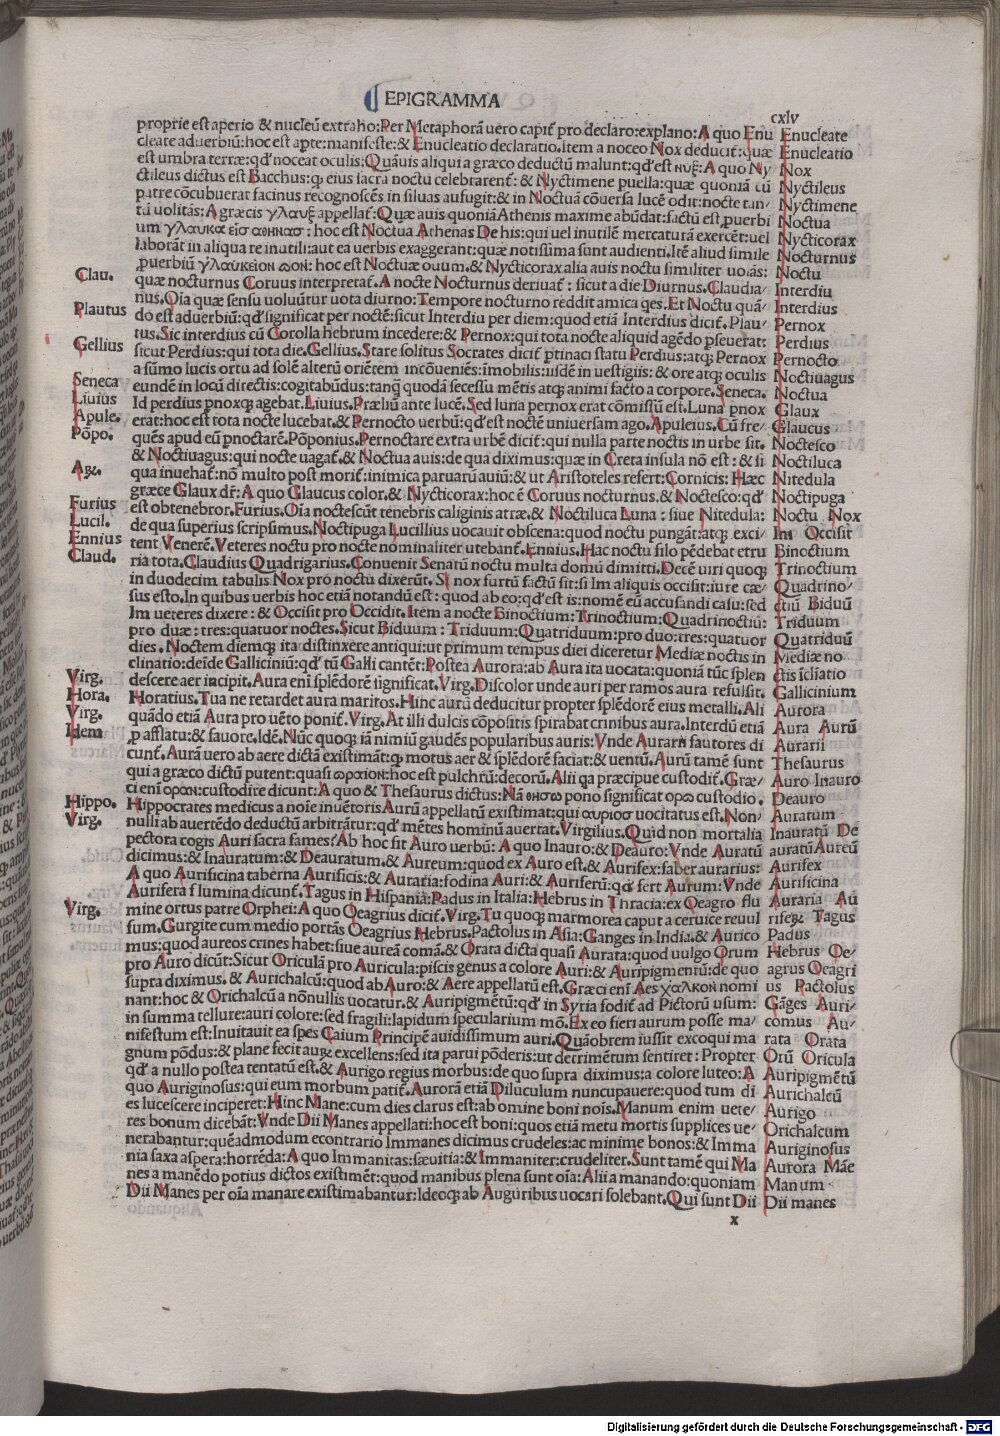 EPIGRAMMA
cxlv
proprie est aperio & nucleū extraho: Per Metaphorā uero capit̄ pro declaro: explano: A quo Enu
cleate aduerbiū: hoc est apte: manifeste: & Enucleatio declaratio. Item a noceo Nox deducit̄: quæ
est umbra terræ: qd' noceat oculis: Quāuis aliqui a græco deductū malunt: qd' est νυξ: A quo Ny
ctileus dictus est Bacchus: qꝫ eius sacra noctu celebrarent̄: & Nyctimene puella: quæ quoniā cū
patre cōcubuerat facinus recognoscēs in siluas aufugit: & in Noctuā cōuersa lucē odit: nocte tan/
tū uolitās: A græcis γλαυξ appellat̄: Quæ auis quoniā Athenis maxime abūdat: factū est ꝓuerbi
um γλαυκα εισ αθηνασ: hoc est Noctua Athenas De his: qui uel inutilē mercaturā exercēt: uel
laborāt in aliqua re inutili: aut ea uerbis exaggerant: quæ notissima sunt audienti. Itē aliud simile
ꝓuerbiū γλαυκειον ωον: hoc est Noctuæ ouum. & Nycticorax alia auis noctu similiter uolās:
quæ nocturnus Coruus interpretat̄. A nocte Nocturnus deriuat̄: sicut a die Diurnus. Claudia/
nus. Oīa quæ sensu uoluūtur uota diurno: Tempore nocturno reddit amica qes. Et Noctu quā/
do est aduerbiū: qd' significat per noctē: sicut Interdiu per diem: quod etiā Interdius dicit̄. Plau/
tus. Sic interdius cū Corolla hebrum incedere: & Pernox: qui tota nocte aliquid agēdo ꝑseuerat:
sicut Perdius: qui tota die. Gellius. Stare solitus Socrates dicit̄ ꝑtinaci statu Perdius: atqꝫ Pernox
a sūmo lucis ortu ad solē alterū oriētem incōueniēs: īmobilis: iisdē in uestigiis: & ore atqꝫ oculis
eundē in locū directis: cogitabūdus: tanqꝫ quodā secessu mētis atqꝫ animi facto a corpore. Seneca.
Id perdius ꝑnoxqꝫ agebat. Liuius. Præliū ante lucē. Sed luna pernox erat cōmissū est. Luna ꝑnox
erat: hoc est tota nocte lucebat. & Pernocto uerbū: qd' est noctē uniuersam ago. Apuleius. Cū fre/
quēs apud eū ꝑnoctarē. Pōponius. Pernoctare extra urbē dicit̄: qui nulla parte noctis in urbe sit.
& Noctiuagus: qui nocte uagat̄. & Noctua auis: de qua diximus: quæ in Creta insula nō est: & si
qua inuehat̄: nō multo post morit̄: inimica paruarū auiū: & ut Aristoteles refert: Cornicis: Hæc
græce Glaux dr̄: A quo Glaucus color. & Nycticorax: hoc ē Coruus nocturnus. & Noctesco: qd'
est obtenebror. Furius. Oīa noctescūt tenebris caliginis atræ. & Noctiluca Luna: siue Nitedula:
de qua superius scripsimus. Noctipuga Lucillius uocauit obscena: quod noctu pungāt: atqꝫ exci/
tent Venerē. Veteres noctu pro nocte nominaliter utebant̄. Ennius. Hac noctu filo pēdebat etru
ria tota. Claudius Quadrigarius. Conuenit Senatū noctu multa domū dimitti. Decē uiri quoqꝫ
in duodecim tabulis Nox pro noctu dixerūt. Si nox furtū factū sit: si Im aliquis occisit: iure cæ/
sus esto. In quibus uerbis hoc etiā notandū est: quod ab eo: qd' est is: nomē eū accusandi casu: sed
Im ueteres dixere: & Occisit pro Occidit. Item a nocte Binoctium: Trinoctium: Quadrinoctiū:
pro duæ: tres: quatuor noctes. Sicut Biduum: Triduum: Quatriduum: pro duo: tres: quatuor
dies. Noctem diemqꝫ ita distinxere antiqui: ut primum tempus diei diceretur Mediæ noctis in
clinatio: deīde Galliciniū: qd' tū Galli cantēt: Postea Aurora: ab Aura ita uocata: quoniā tūc splen
descere aer incipit. Aura enī splēdorē significat. Virg. Discolor unde auri per ramos aura refulsit.
Horatius. Tua ne retardet aura maritos. Hinc aurū deducitur propter splēdorē eius metalli. Ali
quādo etiā Aura pro uēto ponit̄. Virg. At illi dulcis cōpositis spirabat crinibus aura. Interdū etiā
ꝓ afflatu: & fauore. Idē. Nūc quoqꝫ iā nimiū gaudēs popularibus auris: Vnde Aurarii fautores di
cunt̄. Aurā uero ab aere dictā existimāt: qꝫ motus aer & splēdorē faciat: & uentū. Aurū tamē sunt
qui a græco dictū putent: quasi ωραιον: hoc est pulchrū: decorū. Alii qa præcipue custodit̄. Græ/
ci enī οραν: custodire dicunt: A quo & Thesaurus dictus: Nā θησω pono significat ορω custodio.
Hippocrates medicus a noīe inuētoris Aurū appellatū existimat: qui αυριοσ uocitatus est. Non/
nulli ab auertēdo deductū arbitrātur: qd' mētes hominū auertat. Virgilius. Quid non mortalia
pectora cogis Auri sacra fames? Ab hoc sit Auro uerbū: A quo Inauro: & Deauro: Vnde Auratū
dicimus: & Inauratum: & Deauratum. & Aureum: quod ex Auro est. & Aurifex: faber aurarius:
A quo Aurificina taberna Aurificis: & Auraria: fodina Auri: & Auriferū: qd' fert Aurum: Vnde
Aurifera flumina dicunt̄. Tagus in Hispania: Padus in Italia: Hebrus in Thracia: ex Oeagro flu
mine ortus patre Orphei: A quo Oeagrius dicit̄. Virg. Tu quoqꝫ marmorea caput a ceruice reuul
sum. Gurgite cum medio portās Oeagrius Hebrus. Pactolus in Asia: Ganges in India. & Aurico
mus: quod aureos crines habet: siue aureā comā. & Orata dicta quasi Aurata: quod uulgo Orum
pro Auro dicūt: Sicut Oriculā pro Auricula: piscis genus a colore Auri: & Auripigmentū: de quo
supra diximus. & Aurichalcū: quod ab Auro: & Aere appellatū est. Græci enī Aes χαλκον nomi
nant: hoc & Orichalcū a nōnullis uocatur. & Auripigmētū: qd' in Syria fodit̄ ad Pictorū usum:
in summa tellure: auri colore: sed fragili: lapidum specularium mō. Ex eo fieri aurum posse ma/
nifestum est: Inuitauit ea spes Caium Principē auidissimum auri. Quāobrem iussit excoqui ma
gnum pōdus: & plane fecit auꝝ excellens: sed ita parui pōderis: ut detrimētum sentiret: Propter
qd' a nullo postea tentatū est. & Aurigo regius morbus: de quo supra diximus: a colore luteo: A
quo Auriginosus: qui eum morbum patit̄. Aurorā etiā Diluculum nuncupauere: quod tum di
es lucescere inciperet: Hinc Mane: cum dies clarus est: ab omine boni nōis. Manum enim uete/
res bonum dicebāt: Vnde Dii Manes appellati: hoc est boni: quos etiā metu mortis supplices ue/
nerabantur: quēadmodum econtrario Immanes dicimus crudeles: ac minime bonos: & Imma
nia saxa aspera: horrēda: A quo Immanitas: sæuitia: & Immaniter: crudeliter. Sunt tamē qui Ma
nes a manēdo potius dictos existimēt: quod manibus plena sunt oīa: Alii a manando: quoniam
Dii Manes per oīa manare existimabantur: Ideoqꝫ ab Auguribus uocari solebant. Qui sunt Dii
x
Clau.
Plautus
Gellius
Seneca
Liuius
Apule.
Pōpo.
Aꝝ.
Furius
Lucil.
Ennius
Claud.
Virg.
Hora.
Virg.
Idem
Hippo.
Virg.
Virg.
Enucleate
Enucleatio
Nox
Nyctileus
Nyctimene
Noctua
Nycticorax
Nocturnus
Noctu
Interdiu
Interdius
Pernox
Perdius
Pernocto
Noctiuagus
Noctua
Glaux
Glaucus
Noctesco
Noctiluca
Nitedula
Noctipuga
Noctu Nox
Im Occisit
Binoctium
Trinoctium
Quadrino/
ctiū Biduū
Triduum
Quatriduū
Mediæ no
ctis īclīatio
Gallicinium
Aurora
Aura Aurū
Aurarii
Thesaurus
Auro Inauro
Deauro
Auratum
Inauratū De
auratū Aureū
Aurifex
Aurificina
Auraria Au
rifeꝝ Tagus
Padus
Hebrus Oe/
agrus Oeagri
us Pactolus
Gāges Auri/
comus Au/
rata Orata
Orū Oricula
Auripigmētū
Aurichalcū
Aurigo
Orichalcum
Auriginosus
Aurora Māe
Manum
Dii manes
Digitalisierung gefördert durch die Deutsche Forschungsgemeinschaft - DFG